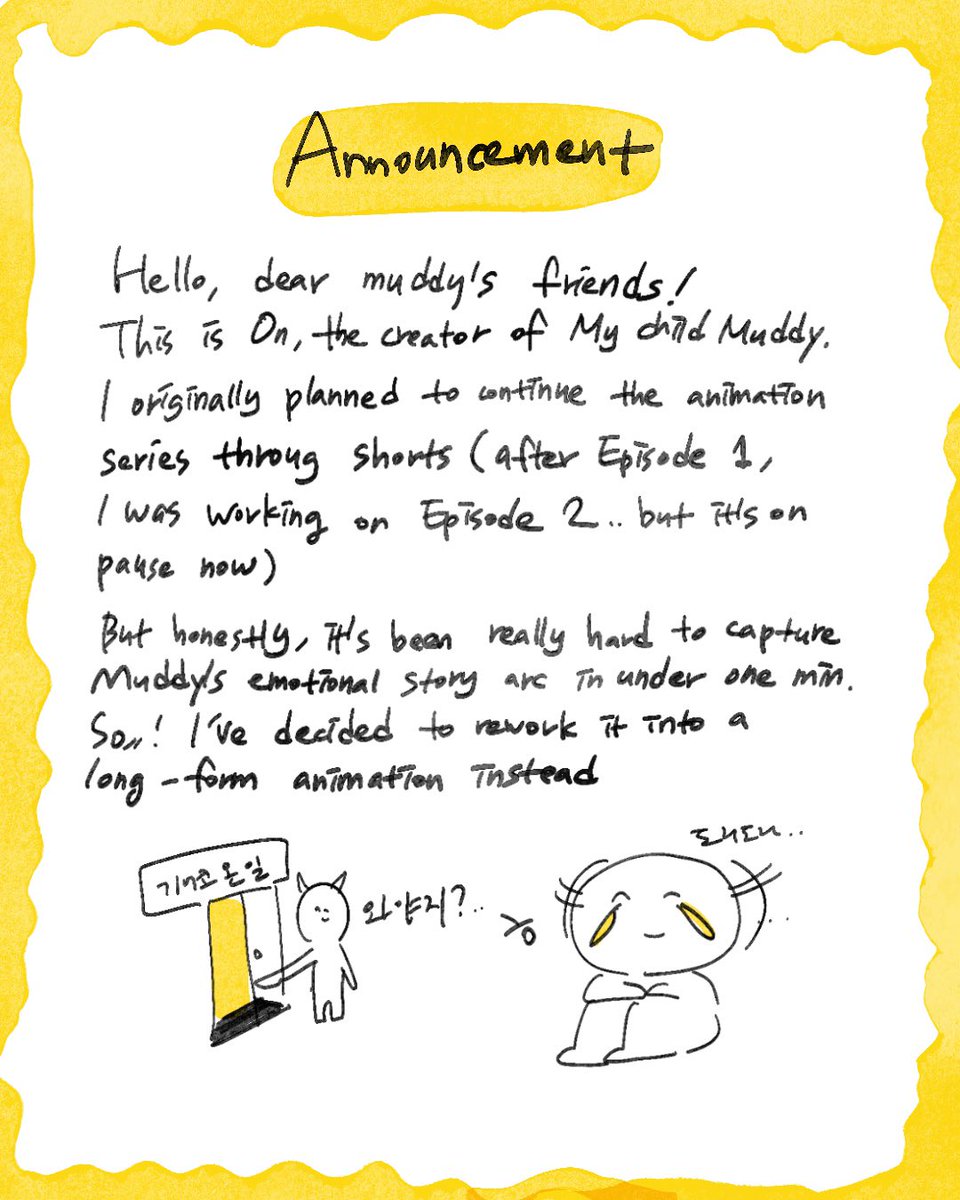 Announcement
Hello, dear muddy's friends!
This is On, the creator of My child Muddy.
I originally planned to continue the animation
series throug shorts (after Episode 1,
I was working on Episode 2.. but it's on
pause now)
But honestly, it's been really hard to capture
Muddy's emotional story arc in under one min.
So,,! I've decided to rework it into a
long-form animation instead
도리도리..
기어코 온 일
와야지?..